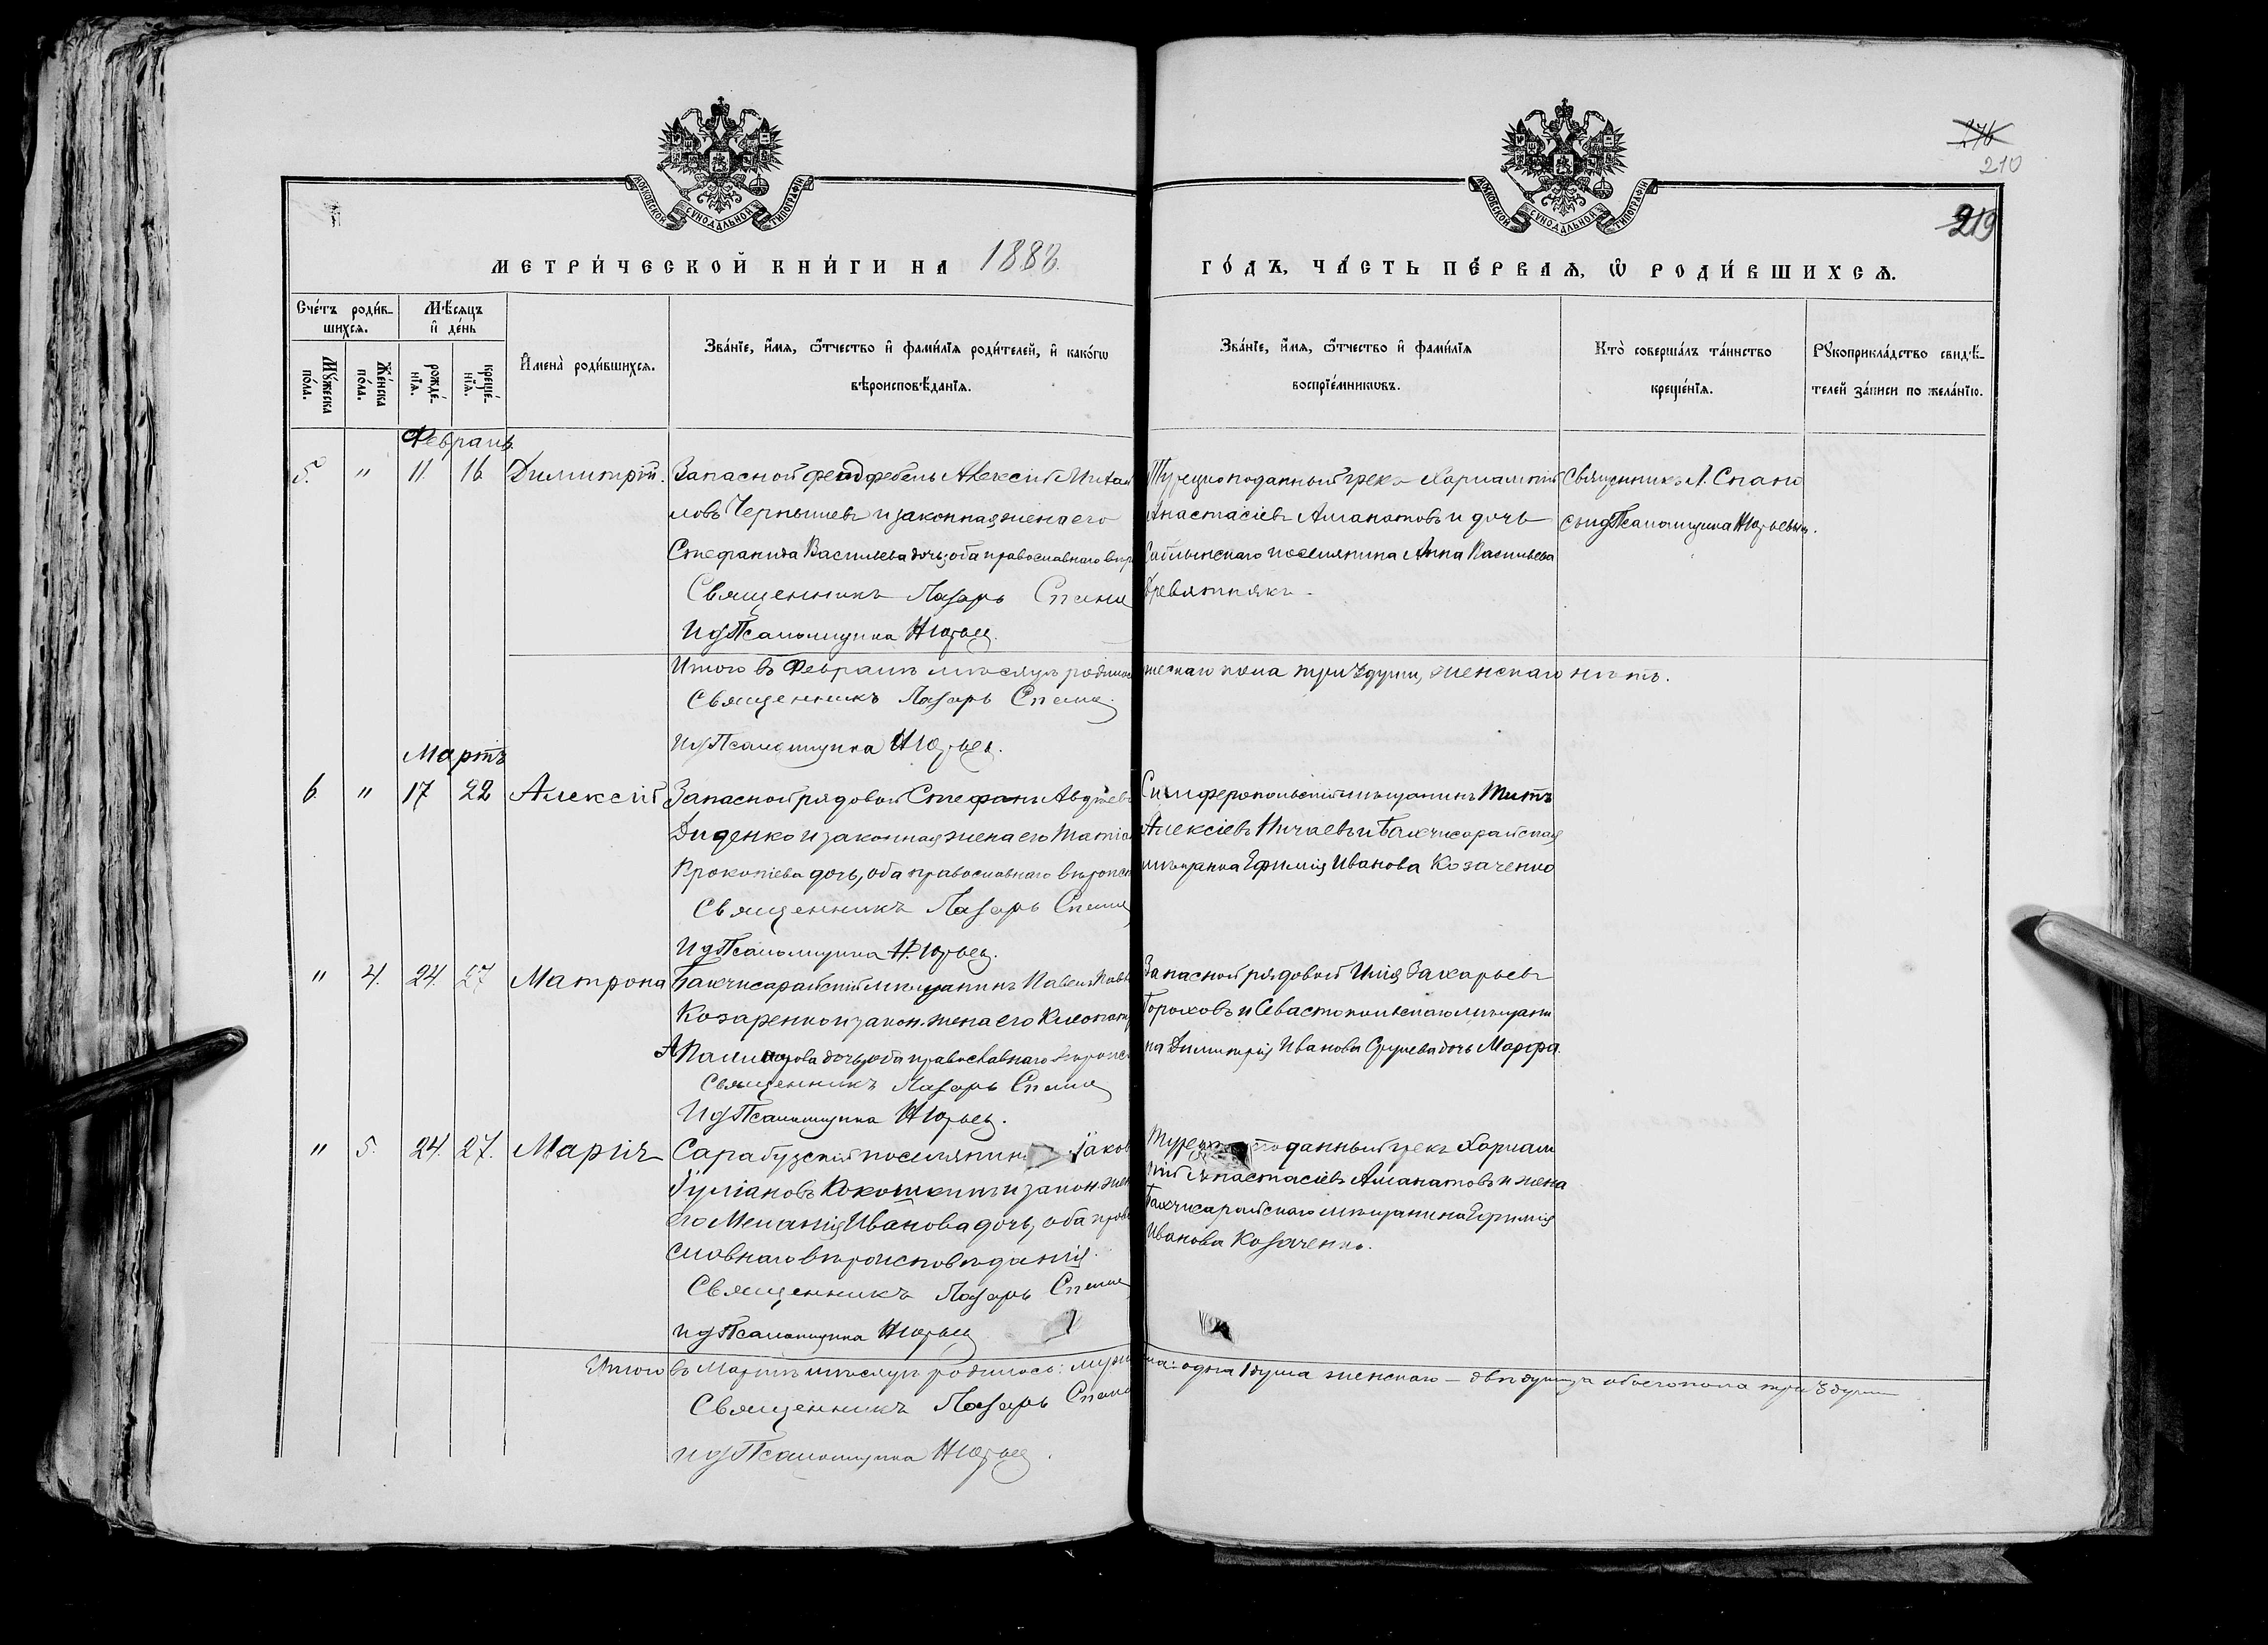 МОСКОВСКОЙ СУНОДАЛЬНОЙ ТИПОГРАФІИ
МОСКОВСКОЙ СУНОДАЛЬНОЙ ТИПОГРАФІИ
276
210
219
МЕТРИ́ЧЕСКОЙ КНИ́ГИ НА 1888.
ГО́ДЪ, ЧА́СТЬ ПЕ́РВАѦ, Ѡ РОДИ́ВШИХСѦ.
Сче́тъ роди́в-
шихсѧ.
Мꙋ́жеска
по́ла.
Же́нска
по́ла.
Мѣ́сѧцъ
и҆ де́нь
рожде́-
нїѧ.
креще́-
нїѧ.
И҆мена̀ роди́вшихсѧ.
Зва́нїе, и҆́мѧ, ѻ҆́тчество и҆ фами́лїѧ роди́телей, и҆ како́гѡ
вѣроисповѣ́данїѧ.
Зва́нїе, и҆́мѧ, ѻ҆́тчество и҆ фами́лїѧ
воспрїе́мникѡвъ.
Кто̀ соверша́лъ та́инство
креще́нїѧ.
Рꙋкоприкла́дство свидѣ́-
телей за́писи по жела́нїю.
Февраль
5. " 11. 16. Димитрій.
Запасной фельдфебель Алексій Михай
ловъ Чернышевъ и законная жена его
Стефанида Васильева дочь, оба православнаго вѣр
Священникъ Лазарь Спано
И д Псаломщика Н Юрьев
Турецко поданный грекъ Харлампій
Анастасіевъ Алманатовъ и дочь
поселянина Анна Васильева
Древятнякъ.
Священникъ Л. Спано
съ и д Псаломщика Н Юрьевым.
Итого въ Февралѣ мѣсяцѣ родилос
жескаго пола три 3 души, женскаго нѣтъ.
Священникъ Лазарь Спано
И д Псаломщика Н Юрьев.
Мартъ
6. " 17 22 Алексій
Запасной рядовой Стефанъ Авдѣев
Диденко и законная жена его Татіа
Прокопіева дочь, оба православнаго вѣроисп
Священникъ Лазарь Спано
И д Псаломщика Н. Юрьев.
Симферопольскій мѣщанинъ Титъ
Алексіевъ Ничаевъ и Бахчисарайская
мѣщанка Ефимія Иванова Козаченко
" 4. 24. 27 Матрона
Бахчисарайскій мѣщанинъ Павелъ Павл
Козаренко и закон. жена его Клеопатр
дочь, оба православнаго вѣроисп
Священникъ Лазарь Спано
И д Псаломщика Н Юрьев.
Запасной рядовой Илія Захарьевъ
Гороховъ и Севастопольскаго мѣщани
на Димитрія Иванова дочь Марфа.
" 5. 24. 27. Марія
Сарабузскій поселянинъ Іаков
Іуліановъ Кокошкинъ и закон. жен
его Меланія Иванова дочь, оба прав
славнаго вѣроисповѣданія.
Священникъ Лазарь Спано
И д Псаломщика Н Юрьев
поданный грекъ Харлам
пій Анастасіевъ Алманатовъ и жена
Бахчисарайскаго мѣщанина Ефимія
Иванова Козаченко.
Итого въ Мартѣ мѣсяцѣ родилось: муж
ла: одна 1 душа женскаго — двѣ души, а обоего пола три 3 души
Священникъ Лазарь Спано
И д Псаломщика Н Юрьев.